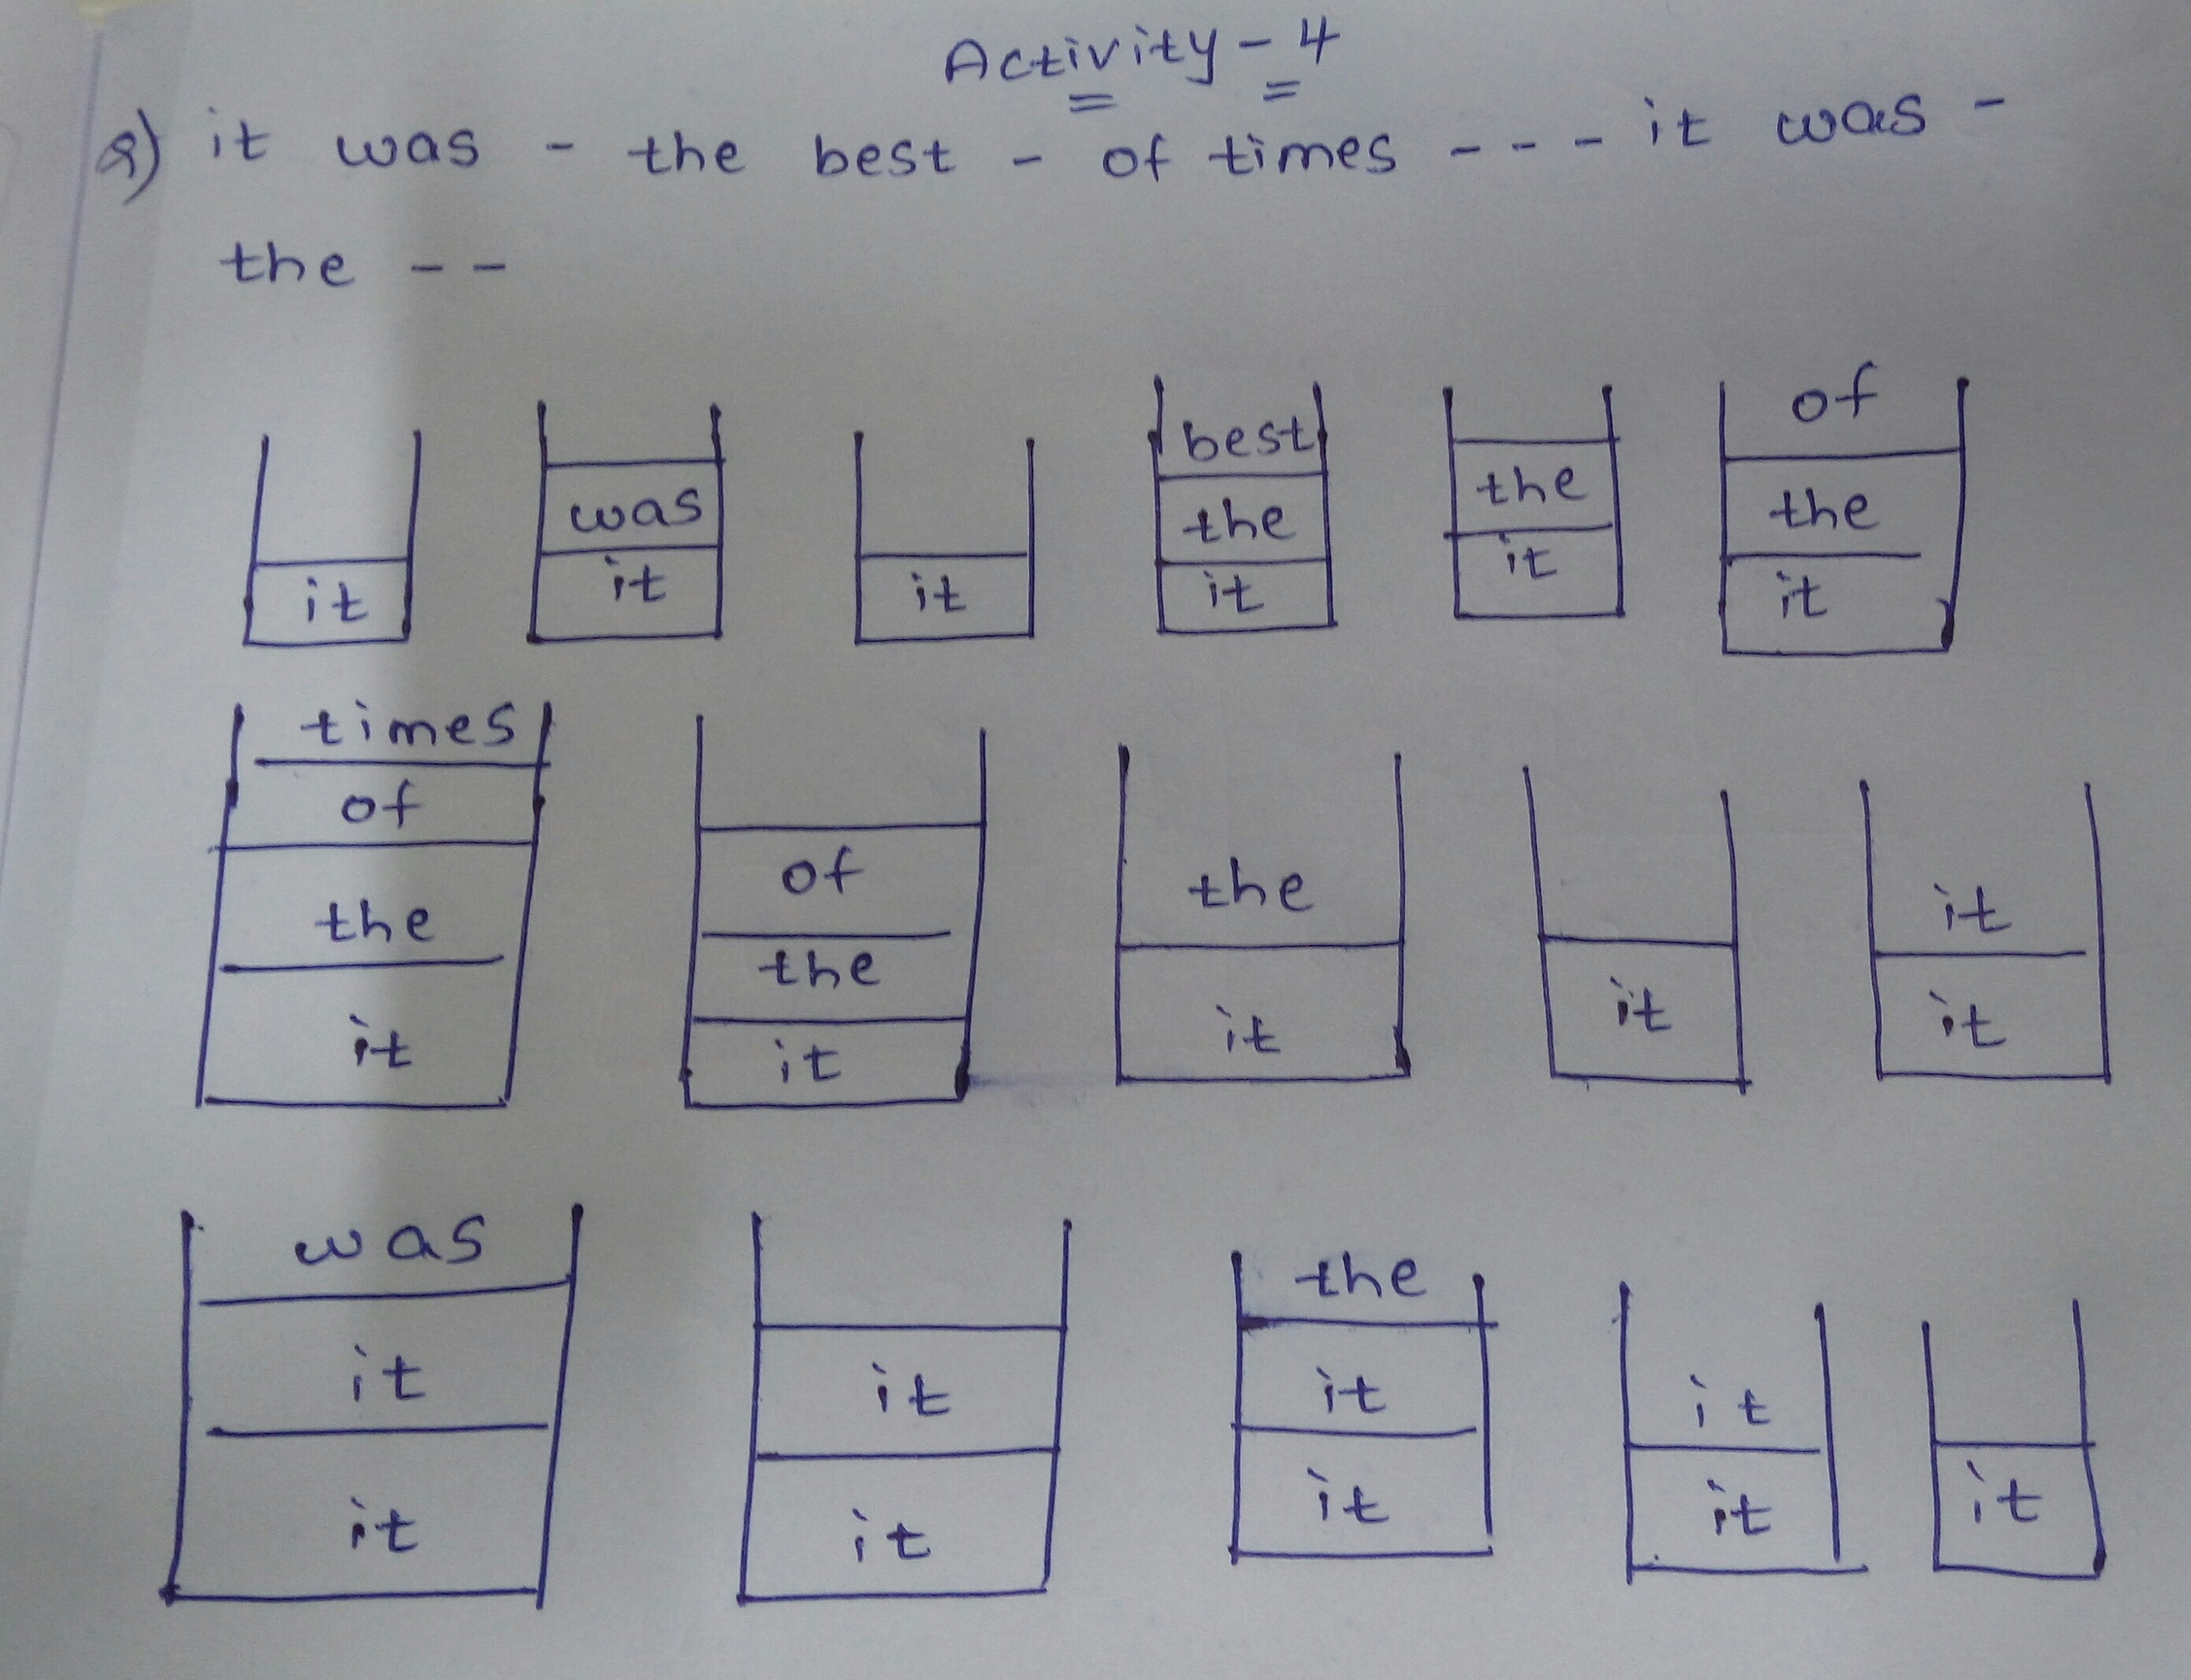 Activity - 4
2) it was - the best - of times - - - it was -
the - -
it
was
it
it
best
the
it
the
it
of
the
it
times
of
the
it
of
the
it
the
it
it
it
it
was
it
it
it
it
the
it
it
it
it
it